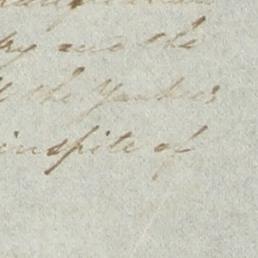 and the
the Yankees
inspite of